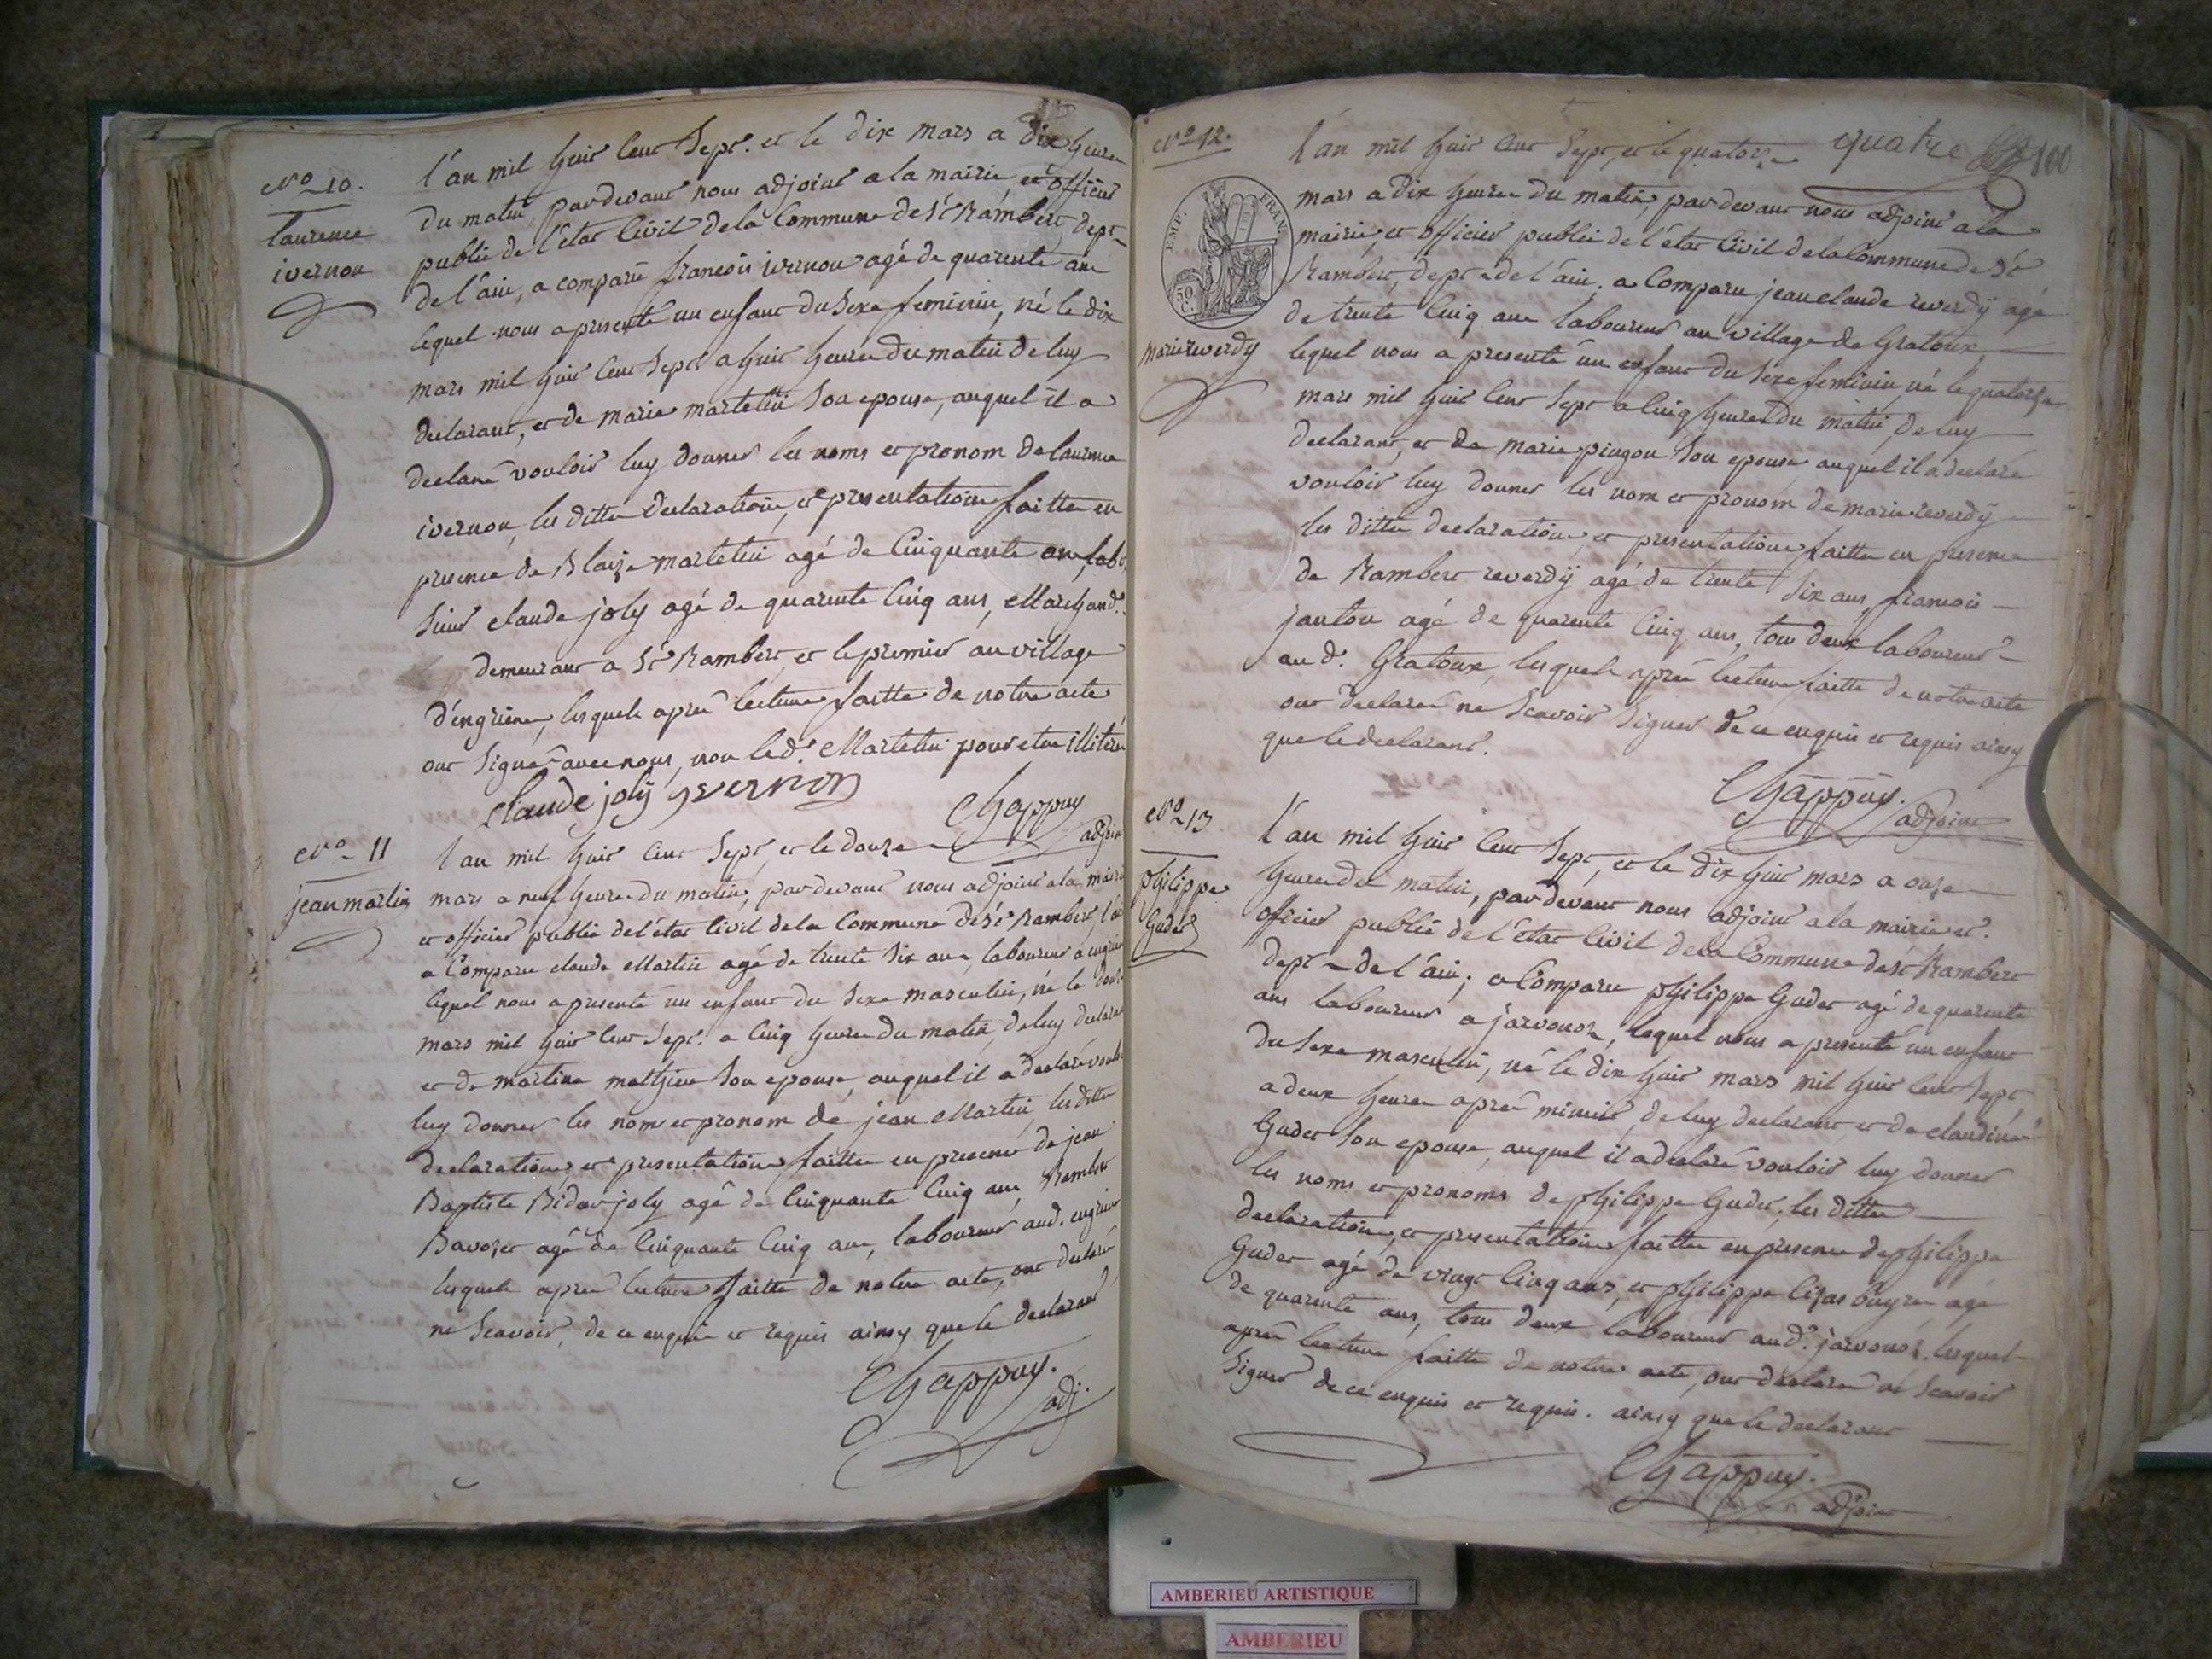 No 10.
laurence
ivernon
l'an mil huit cent sept. et le dix mars a dix heures
du matin, pardevant nous adjoint a la mairie et officier
public de l'état civil de la commune de St Rambert dept
de l'ain, a comparu francois ivernon agé de quarente ans
lequel nous a presenté un enfant du sexe feminin, né le dix
mars mil huit cent sept a huit heures du matin de luy
declarant, et de marie martelin son epouse, auquel il a
declaré vouloir luy donner les noms et pronom de laurence
ivernon, les dittes declaration, et presentation faitte en
presence de Blaize martelin agé de cinquante ans, labr,
sieur claude joly agé de quarente cinq ans, Marchand.
demeurant a St Rambert, et le premier au village
d'engrieres, lesquels aprés lecture faitte de notre acte
ont signé avec nous, non led. Martelin pour etre illiteré
claude joly yvernon
Chappuy
adjoint
No 11
jean martin
l'an mil huit cent sept, et le douze
mars a neuf heures du matin, pardevant nous adjoint a la mairie
et officier public de l'état civil de la commune de St Rambert, l'ain
a comparu claude Martin agé de trente six ans, laboureur a engrieres
lequel nous a presenté un enfant du sexe masculin, né le douze
mars mil huit cent sept. a cinq heures du matin, de luy declarant
et de martine mathieu son epouse, auquel il a declaré vouloir
luy donner les noms et pronom de jean Martin, les dittes
declaration, et presentation faitte en presence de jean
Baptiste Bidarjoly agé de cinquante cinq ans, Rambert
Bavozet agé de cinquante cinq ans, laboureur aud. engrieres
lesquels aprés lecture faitte de notre acte, ont declaré
ne scavoir, de ce enquis et requis ainsy que le declarant
Chappuy.
adj.
No 12.
quatre 100
EMP. FRAN.
50 C.
marie reverdy
l'an mil huit cent sept, et le quatorze
mars a dix heures du matin, pardevant nous adjoint a la
mairie, et officier public de l'état civil de la commune de St
Rambert, dept de l'ain. a comparu jean claude reverdÿ agé
de trente cinq ans laboureur au village de Gratoux,
lequel nous a presenté un enfant du sexe feminin, né le quatorze
mars mil huit cent sept a cinq heures du matin, de luy
declarant, et de marie pingon son epouse auquel il a declaré
vouloir luy donner les nom et pronom de marie reverdÿ
les dittes declaration, et presentation faitte en presence
de Rambert reverdÿ agé de trente six ans, francois
janton agé de quarente cinq ans, tous deux laboureur
aud. Gratoux, lesquels aprés lecture faitte de notre acte
ont declaré ne scavoir signer de ce enquis et requis ainsy
que le declarant.
Chappuy.
adjoint
No 13
philippe
Guder
l'an mil huit cent sept, et le dix huit mars a onze
heures du matin, pardevant nous adjoint a la mairie et.
officier public de l'état civil de la commune de St Rambert
dept de l'ain; a comparu philippe Guder agé de quarente
ans laboureur a jarvonoz, lequel nous a presenté un enfant
du sexe masculin, né le dix huit mars mil huit cent sept
a deux heures aprés minuit, de luy declarant, et de claudine
Guder son epouse, auquel il a declaré vouloir luy donner
les noms et pronoms de philippe Guder, les dittes
declaration, et presentation faitte en presence de philippe
Guder agé de vingt cinq ans, et philippe agé
de quarente ans, tous deux laboureur aud. jarvonoz. lesquel
aprés lecture faitte de notre acte, ont declaré ne scavoir
signer de ce enquis et requis. ainsy que le declarant
Chappuy.
adjoint
AMBERIEU ARTISTIQUE
AMBERIEU